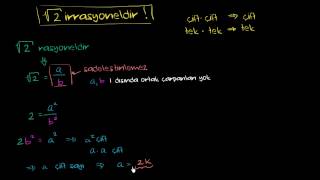 √2 irrasyoneldir !
çift . çift ⇒ çift
tek . tek ⇒ tek
√2 rasyoneldir
√2 = a/b → sadeleştirilemez
a, b 1 dışında ortak çarpanları yok
2 = a²/b²
2b² = a² ⇒ a² çift
a . a çift
⇒ a çift sayı ⇒ a = 2k